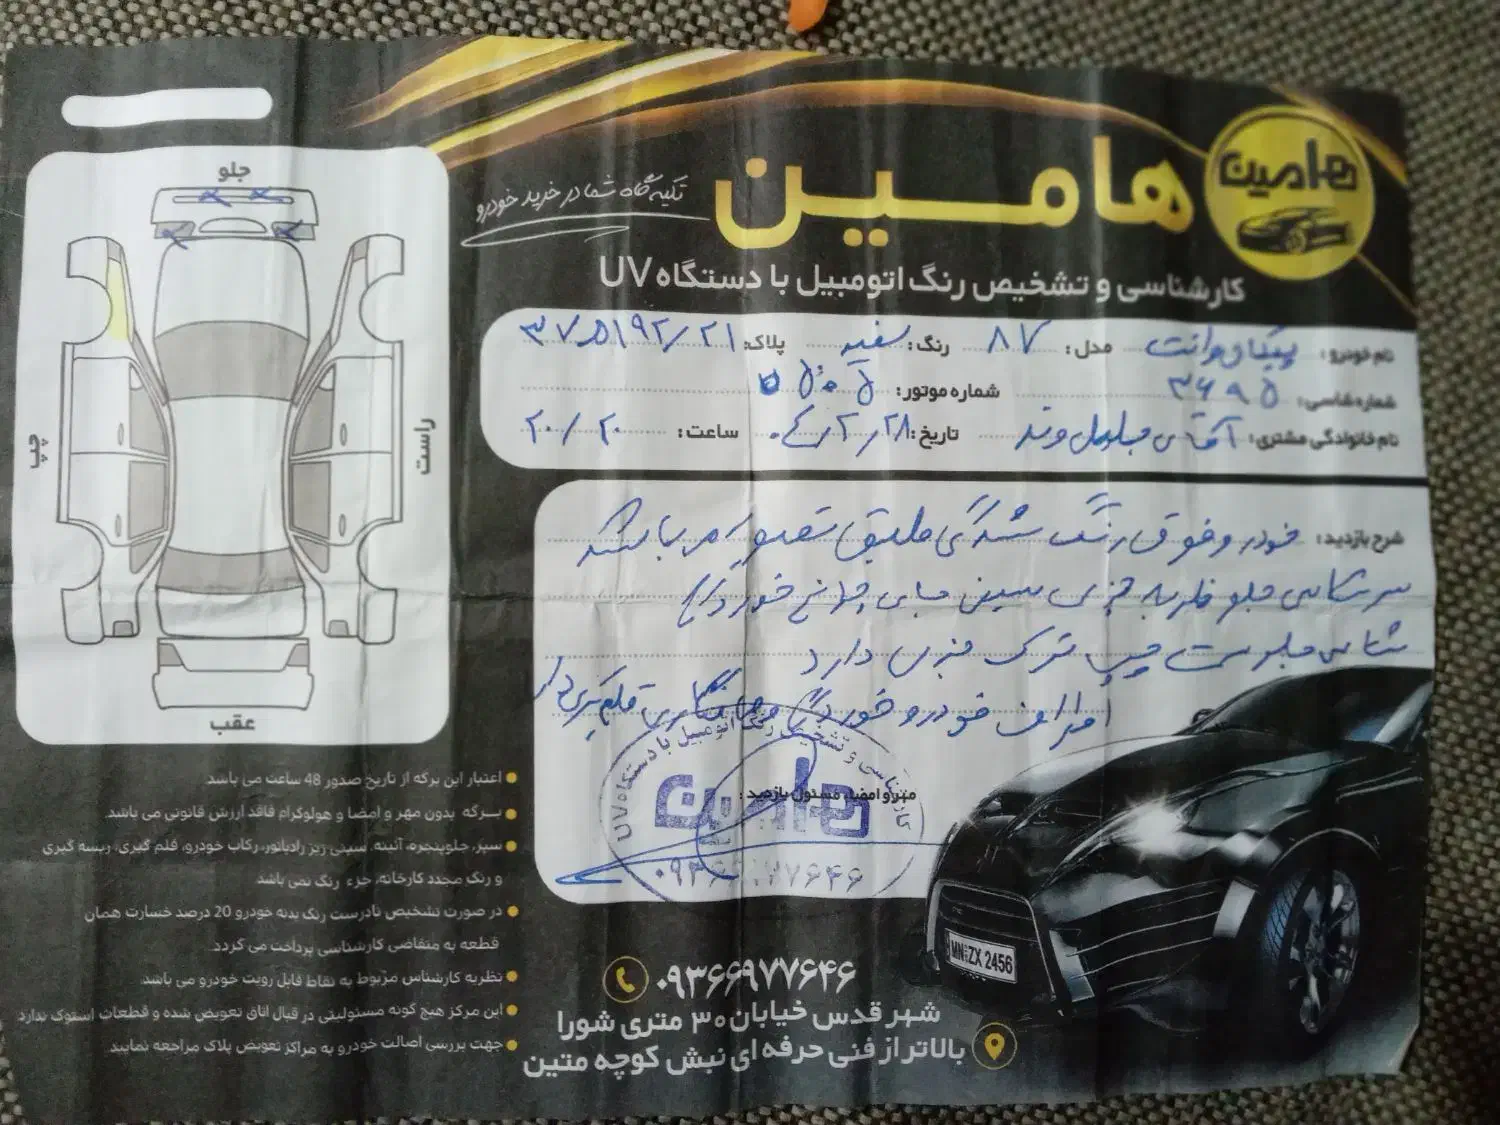 هامین
هامین
تکیه گاه شما در خرید خودرو
کارشناسی و تشخیص رنگ اتومبیل با دستگاه UV
نام خودرو: پیکان وانت مدل: ۸۷ رنگ: سفید پلاک:
شماره شاسی: ۳۶۹۵ شماره موتور:
نام خانوادگی مشتری: آقای تاریخ: ۰۴/۲/۲۸ ساعت: ۲۰/۲۰
شرح بازدید: خودرو فوق رنگ شدگی طبق تصویر می باشد
سرشاسی جلو ضربه جزیی سینی جای چراغ خوردگی
شاسی جلو سمت چپ ترک جزیی دارد
اطراف خودرو خوردگی و صافکاری قلم گیری دارد
مهر و امضاء مسئول بازدید:
کارشناسی و تشخیص رنگ اتومبیل با دستگاه UV
هامین
۰۹۳۶۶۹۷۷۶۴۶
جلو
چپ
راست
عقب
اعتبار این برگه از تاریخ صدور 48 ساعت می باشد
برگه بدون مهر و امضا و هولوگرام فاقد ارزش قانونی می باشد.
سپر، جلوپنجره، آئینه، سینی زیر رادیاتور، رکاب خودرو، قلم گیری، ریسه گیری
و رنگ مجدد کارخانه، جزء رنگ نمی باشد
در صورت تشخیص نادرست رنگ بدنه خودرو 20 درصد خسارت همان
قطعه به متقاضی کارشناسی پرداخت می گردد.
نظریه کارشناس مربوط به نقاط قابل رویت خودرو می باشد.
این مرکز هیچ گونه مسئولیتی در قبال اتاق تعویض شده و قطعات استوک ندارد
جهت بررسی اصالت خودرو به مراکز تعویض پلاک مراجعه نمایید.
MN ZX 2456
۰۹۳۶۶۹۷۷۶۴۶
شهر قدس خیابان ۳۰ متری شورا
بالاتر از فنی حرفه ای نبش کوچه متین